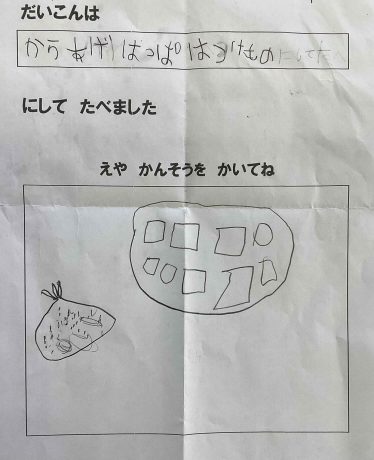 だいこんは
からあげ はっぱはつけものにしてた
にして たべました
えや かんそうを かいてね